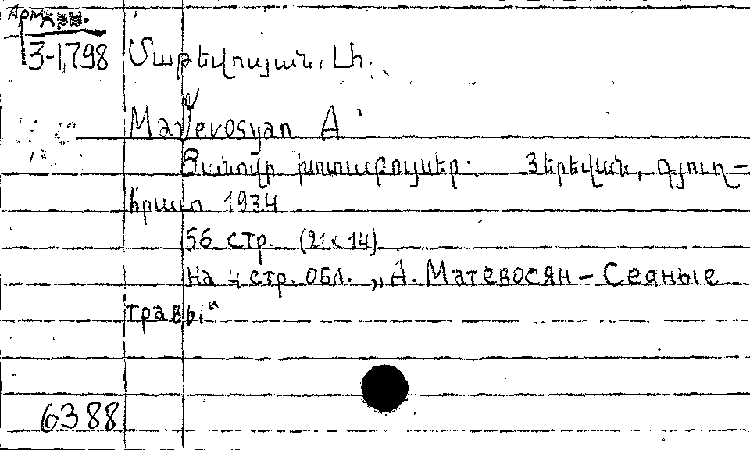 Арм
3-1798 Մաթևոսյան, Ա.
Matevosyan A
Ցանովի խոտաբույսեր. Յերեվան, գյուղ-
հրատ 1934
56 стр. (21×14)
на 4 стр. обл. „А. Матевосян – Сеяные
травы"
6388